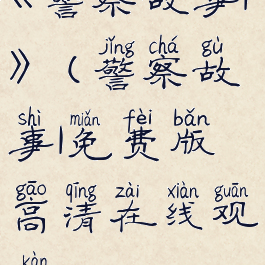 《警察故事|
jǐng chá gù
》(警察故
shì miǎn fèi bǎn
事|免费版
gāo qīng zài xiàn guān
高清在线观
kàn